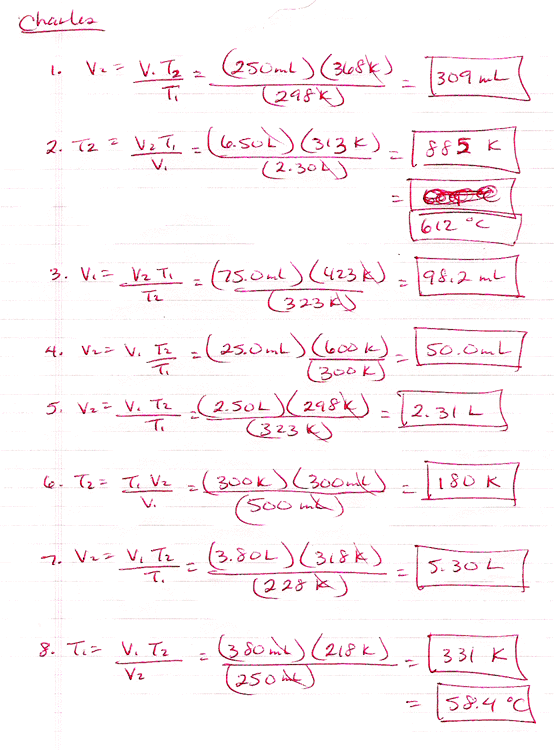 Charles
1. V₂ = V₁ T₂ / T₁ = (250 mL) (368 K) / (298 K) = 309 mL
2. T₂ = V₂ T₁ / V₁ = (6.50 L) (313 K) / (2.30 L) = 885 K
= 612 °C
3. V₁ = V₂ T₁ / T₂ = (75.0 mL) (423 K) / (323 K) = 98.2 mL
4. V₂ = V₁ T₂ / T₁ = (25.0 mL) (600 K) / (300 K) = 50.0 mL
5. V₂ = V₁ T₂ / T₁ = (2.50 L) (298 K) / (323 K) = 2.31 L
6. T₂ = T₁ V₂ / V₁ = (300 K) (300 mL) / (500 mL) = 180 K
7. V₂ = V₁ T₂ / T₁ = (3.80 L) (318 K) / (228 K) = 5.30 L
8. T₁ = V₁ T₂ / V₂ = (380 mL) (218 K) / (250 mL) = 331 K
= 58.4 °C